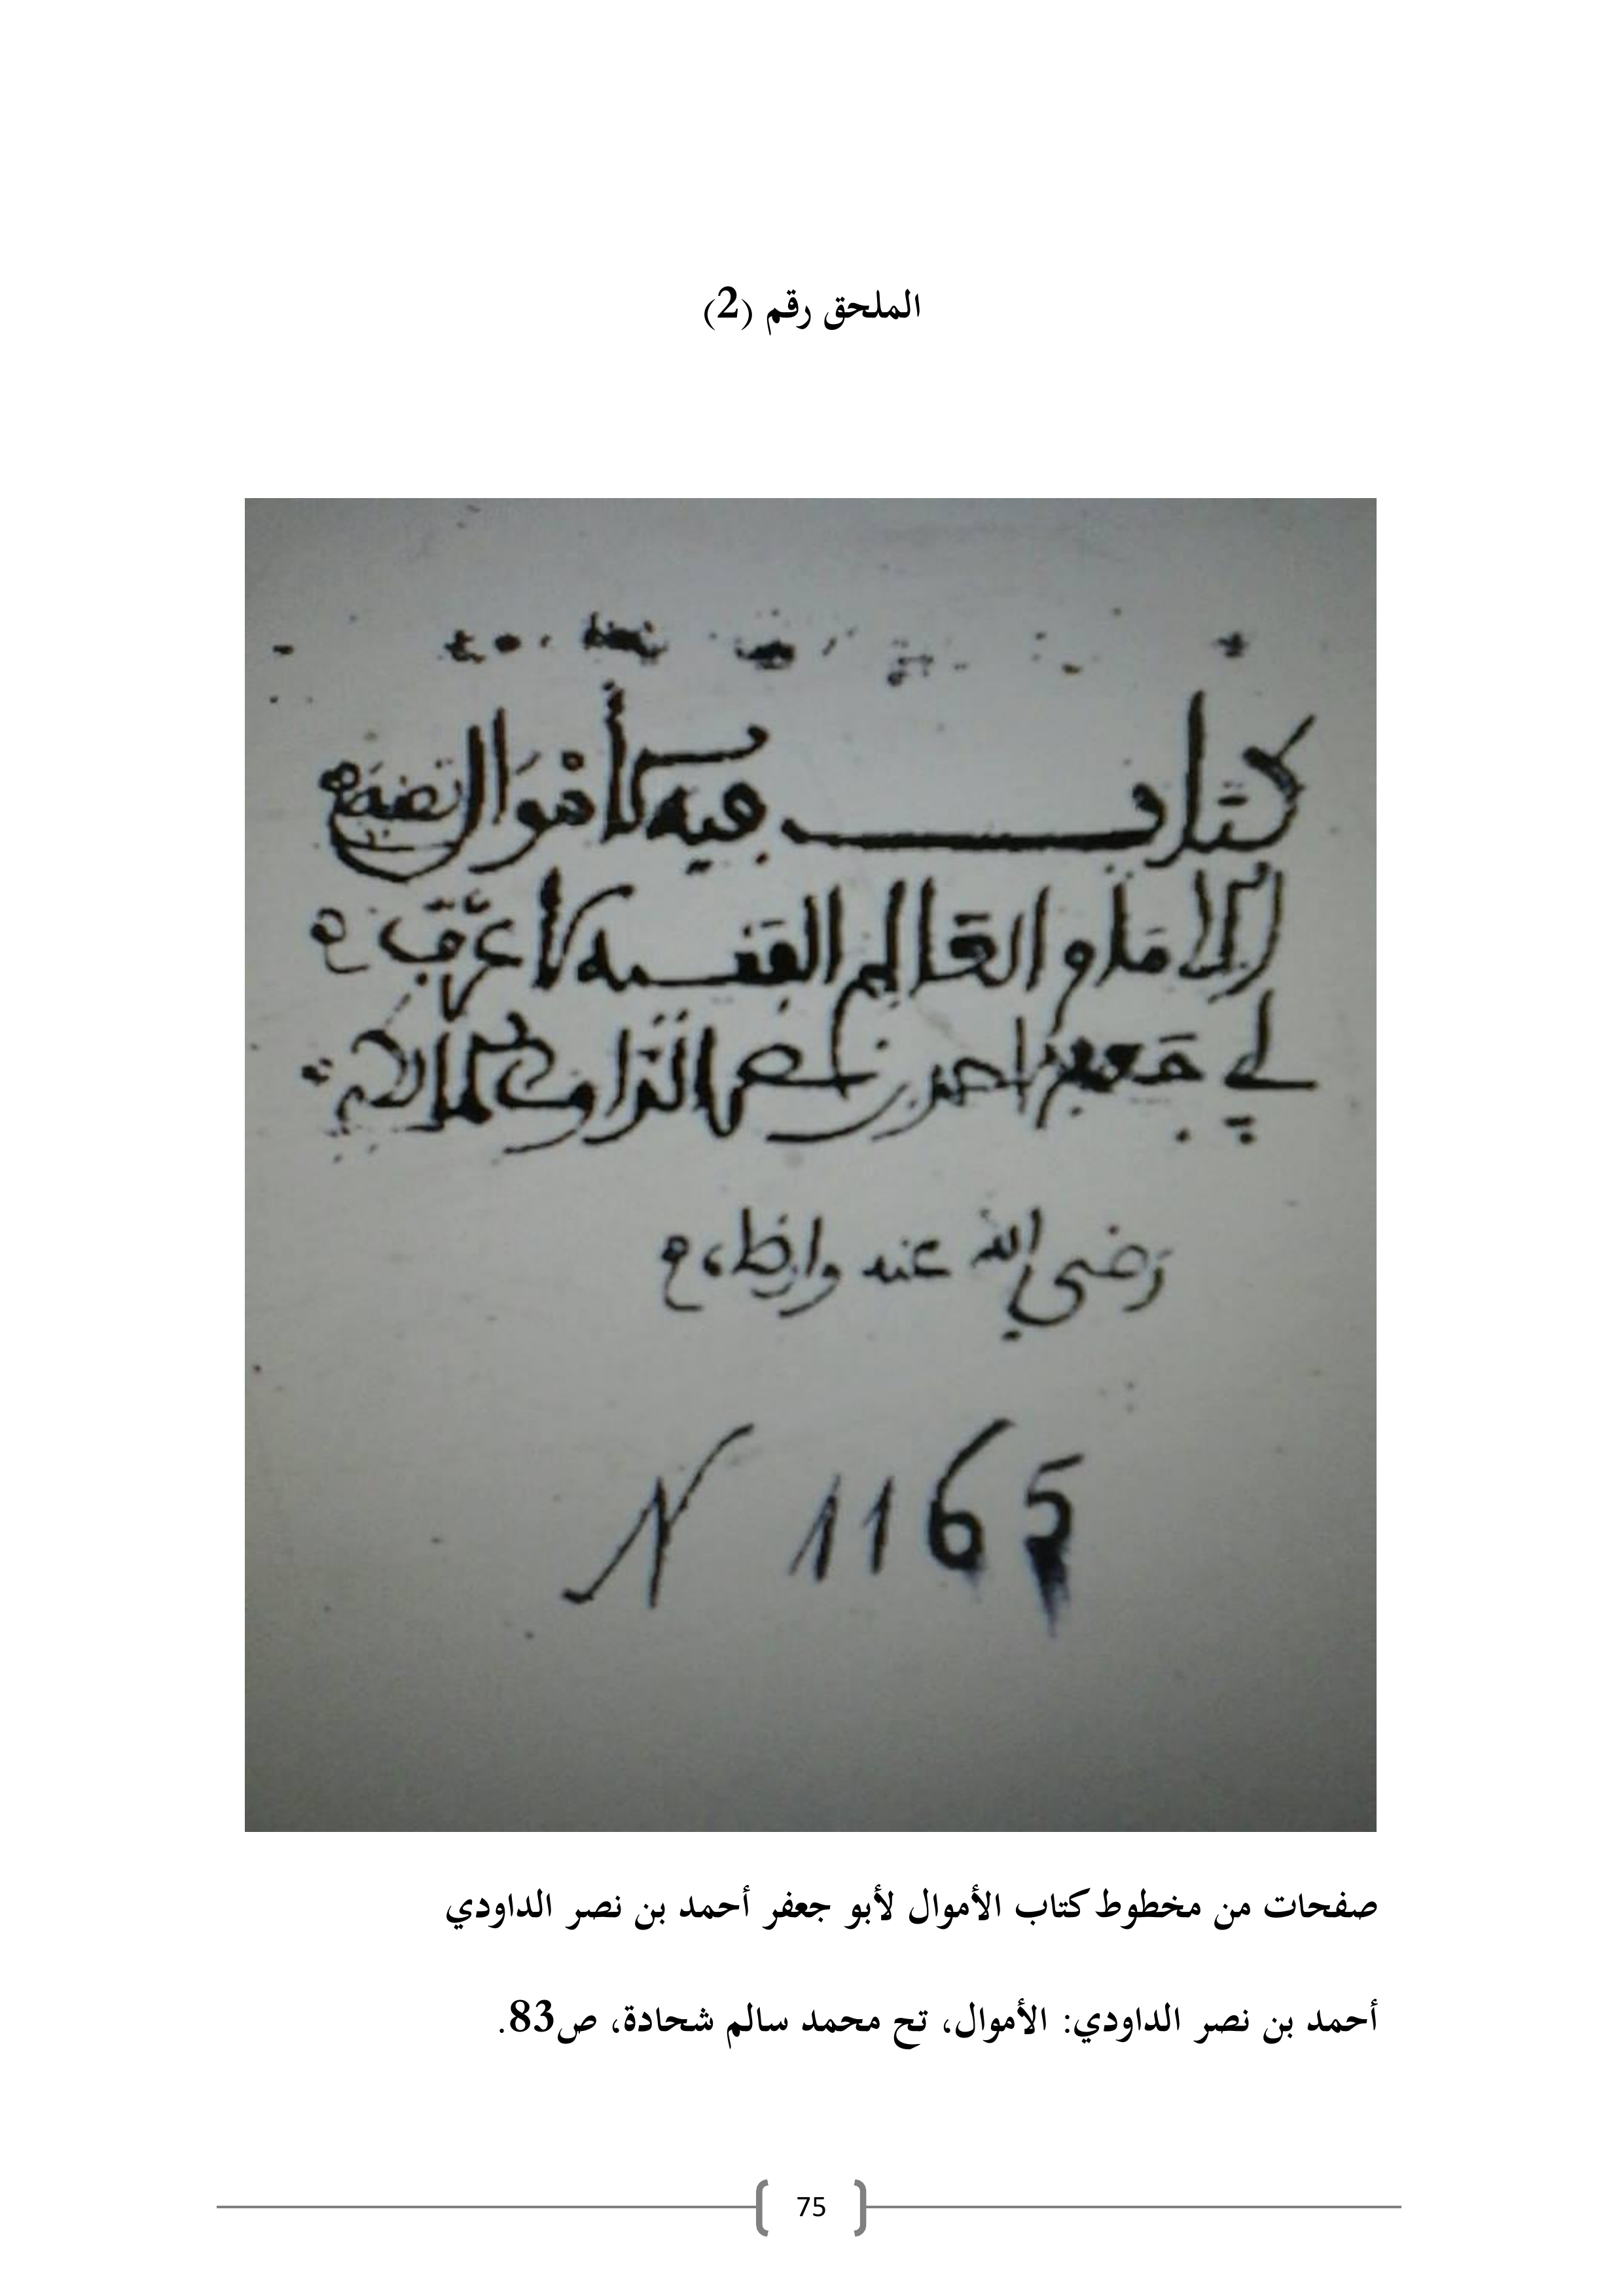 الملحق رقم (2)
كتاب فيه الأموال تصنيف
الامام العالم الفقيه
أبي جعفر احمد بن نصر الداودي المالكي
رضي الله عنه وارضاه
N 1165
صفحات من مخطوط كتاب الأموال لأبو جعفر أحمد بن نصر الداودي
أحمد بن نصر الداودي: الأموال، تح محمد سالم شحادة، ص83.
75